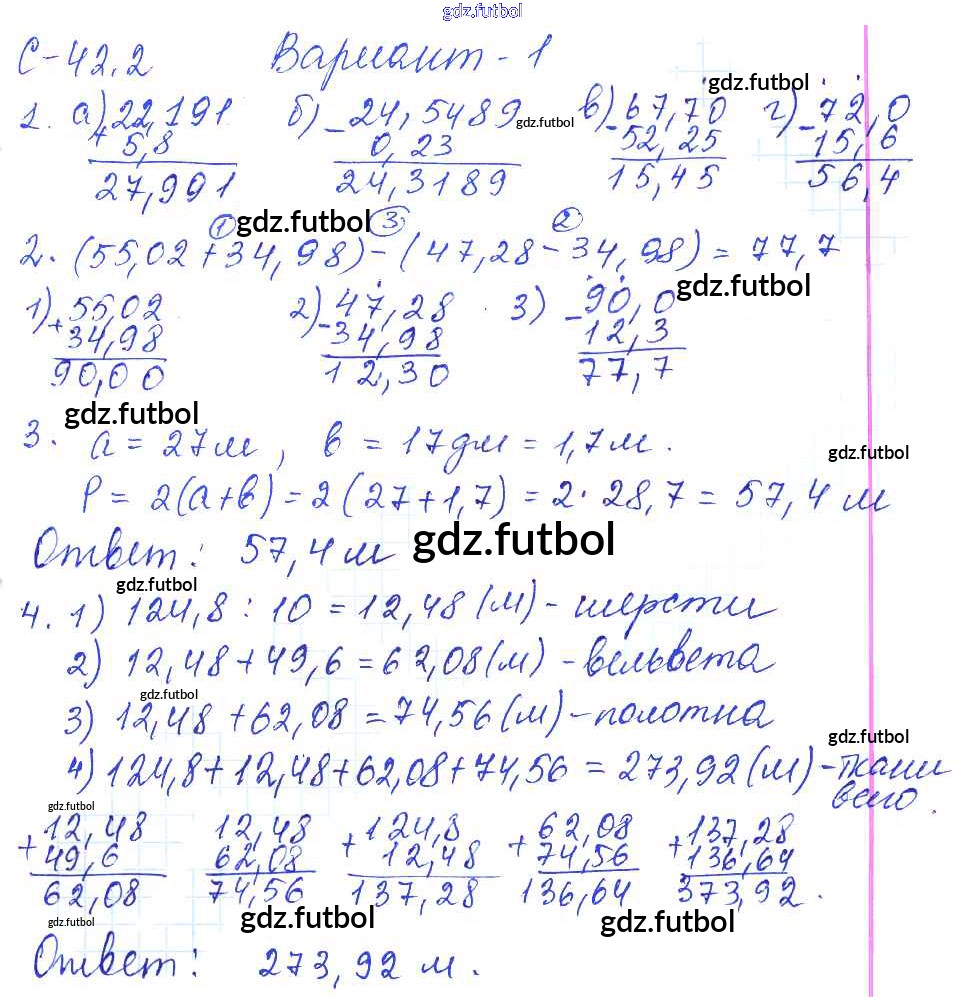 gdz.futbol
С-42.2 Вариант-1
gdz.futbol
1. а) 22,191 б) 24,5489 в) 67,70 г) 72,0
gdz.futbol
+ 5,8 - 0,23 - 52,25 - 15,6
27,991 24,3189 15,45 56,4
① gdz.futbol ③ ②
2. (55,02 + 34,98) - (47,28 - 34,98) = 77,7
gdz.futbol
1) 55,02 2) 47,28 3) 90,0
+ 34,98 - 34,98 - 12,3
90,00 12,30 77,7
gdz.futbol
3. а = 27 м, в = 17 дм = 1,7 м.
gdz.futbol
Р = 2(а+в) = 2(27+1,7) = 2·28,7 = 57,4 м
Ответ: 57,4 м gdz.futbol
gdz.futbol
4. 1) 124,8 : 10 = 12,48 (м) - шерсти
2) 12,48 + 49,6 = 62,08 (м) - вельвета
gdz.futbol
3) 12,48 + 62,08 = 74,56 (м) - полотна
gdz.futbol
4) 124,8 + 12,48 + 62,08 + 74,56 = 273,92 (м) - ткани
всего.
gdz.futbol
+ 12,48 12,48 + 124,8 + 62,08 + 137,28
49,6 62,08 12,48 74,56 136,64
62,08 74,56 137,28 136,64 373,92.
gdz.futbol gdz.futbol gdz.futbol
Ответ: 273,92 м.